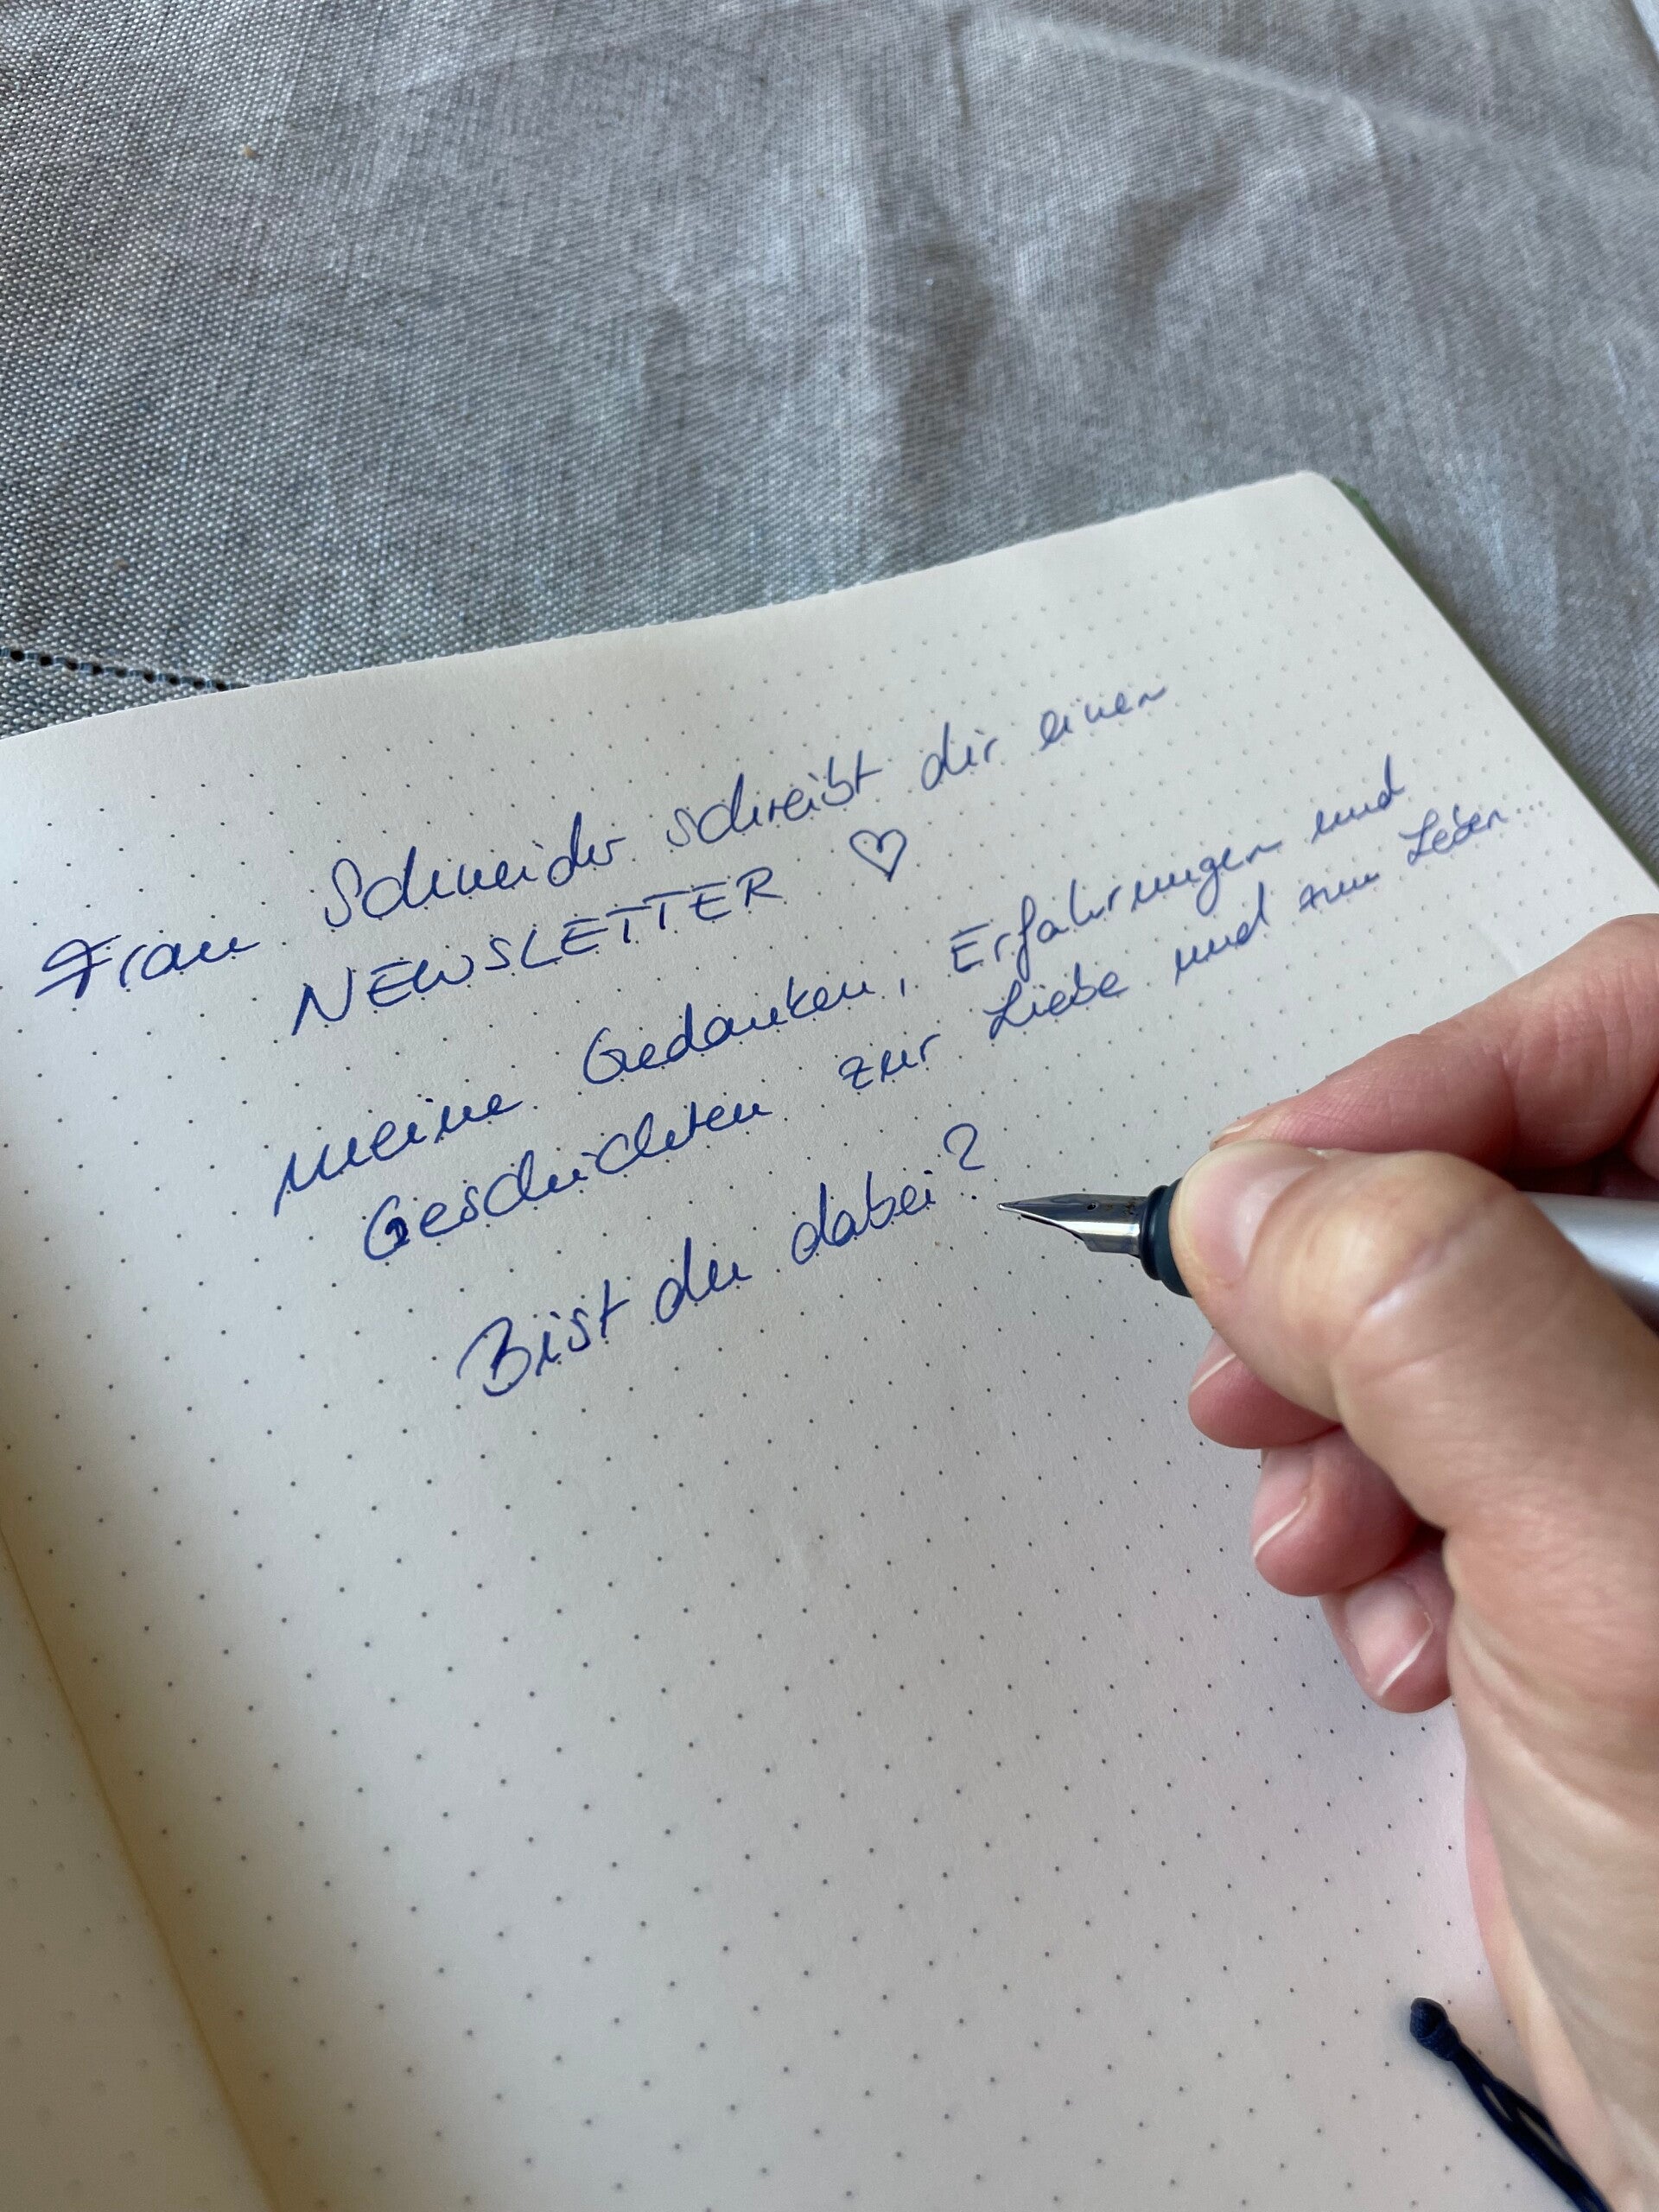 Frau Schneider schreibt dir einen
NEWSLETTER ♡
meine Gedanken, Erfahrungen und
Geschichten zur Liebe und zum Leben...
Bist du dabei?